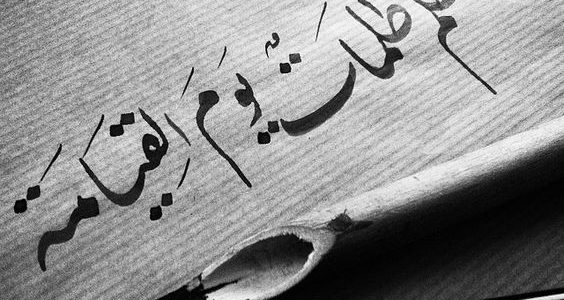 ظلم ظلمات يوم القيامة